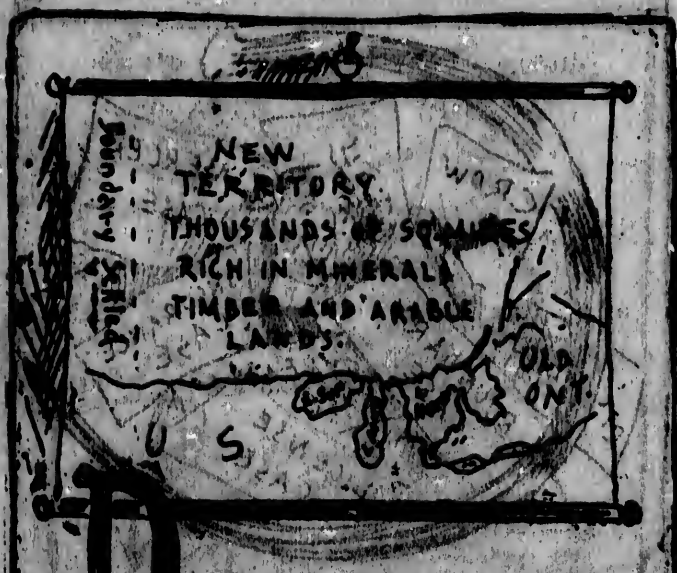 Boundary
NEW
TERRITORY
THOUSANDS OF SQ. MILES
RICH IN MINERALS
TIMBER AND ARABLE
LANDS.
OLD
ONT.
U S